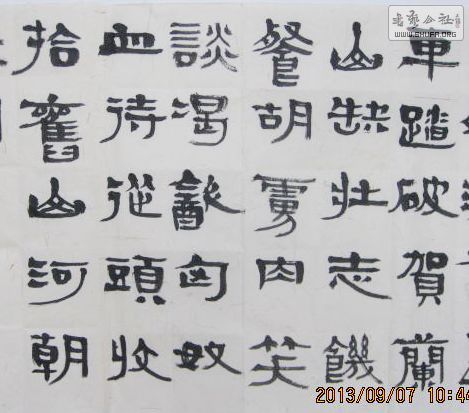 車踏破賀蘭
山缺壯志饑
餐胡虜肉笑
談渴飲匈奴
血待從頭收
拾舊山河朝
书艺公社
WWW.SHUFA.ORG
2013/09/07 10:44